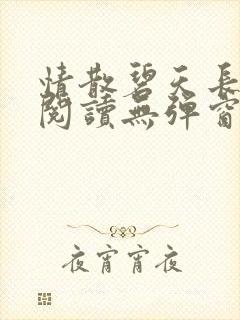 情散碧天長
閱讀無彈窗
夜宵宵夜